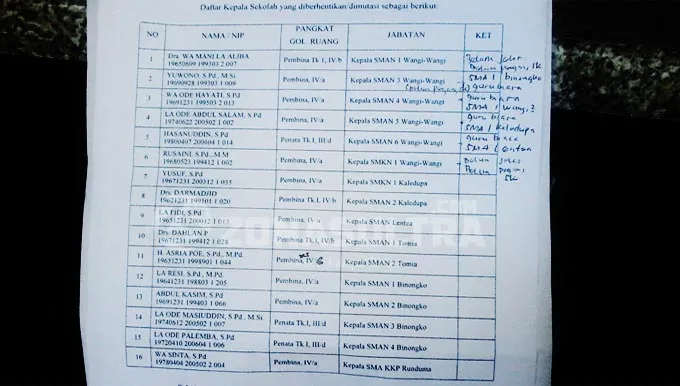 Daftar Kepala Sekolah yang diberhentikan/dimutasi sebagai berikut:
NO NAMA / NIP PANGKAT GOL RUANG JABATAN KET
1 Drs. WA MANI LA ALIHA Pembina Tk I, IV/b Kepala SMAN 1 Wangi-Wangi
19650609 199303 2 007
2 YUWONO, S.Pd, M.Si Pembina, IV/a Kepala SMAN 3 Wangi-Wangi SMA 1 Binongko
19690928 199303 1 009 guru biara
3 WA ODE HAYATI, S.Pd Pembina, IV/a Kepala SMAN 4 Wangi-Wangi guru biara
19691231 199503 2 013 SMA 1 Wangi 2
4 LA ODE ABDUL SALAM, S.Pd Pembina, IV/a Kepala SMAN 5 Wangi-Wangi guru biara
19740622 200502 1 002 SMA 1 Kaledupa
5 HASANUDDIN, S.Pd Penata Tk I, III/d Kepala SMAN 6 Wangi-Wangi guru biara
19800407 200604 1 014 SMA 1
6 RUSAINI, S.Pd., M.M Pembina, IV/a Kepala SMKN 1 Wangi-Wangi
19680523 199412 1 002
7 YUSUF, S.Pd Pembina, IV/a Kepala SMKN 1 Kaledupa
19671231 200312 1 035
8 Drs. DARMADJID Pembina Tk I, IV/b Kepala SMAN 2 Kaledupa
19621231 199101 1 020
9 LA FIDI, S.Pd Pembina, IV/a Kepala SMAN Lentea
19651231 200012 1 013
10 Drs. DAHLAN P Pembina Tk.I, IV/b Kepala SMAN 1 Tomia
19671231 199412 1 028
11 H. ASRIA POE, S.Pd., M.Pd Pembina, IV/b Kepala SMAN 2 Tomia
19651231 1998901 1 044
12 LA RESI, S.Pd., M.Pd. Pembina, IV/a Kepala SMAN 1 Binongko
19641231 198803 1 205
13 ABDUL KASIM, S.Pd Pembina, IV/a Kepala SMAN 2 Binongko
19691231 199403 1 066
14 LA ODE MASIUDDIN, S.Pd., M.Si Penata Tk.I, III/d Kepala SMAN 3 Binongko
19740612 200502 1 007
15 LA ODE PALEMBA, S.Pd Penata Tk.I, III/d Kepala SMAN 4 Binongko
19720410 200604 1 006
16 WA SINTA, S.Pd Pembina, IV/a Kepala SMA KKP Runduma
19780404 200502 2 004